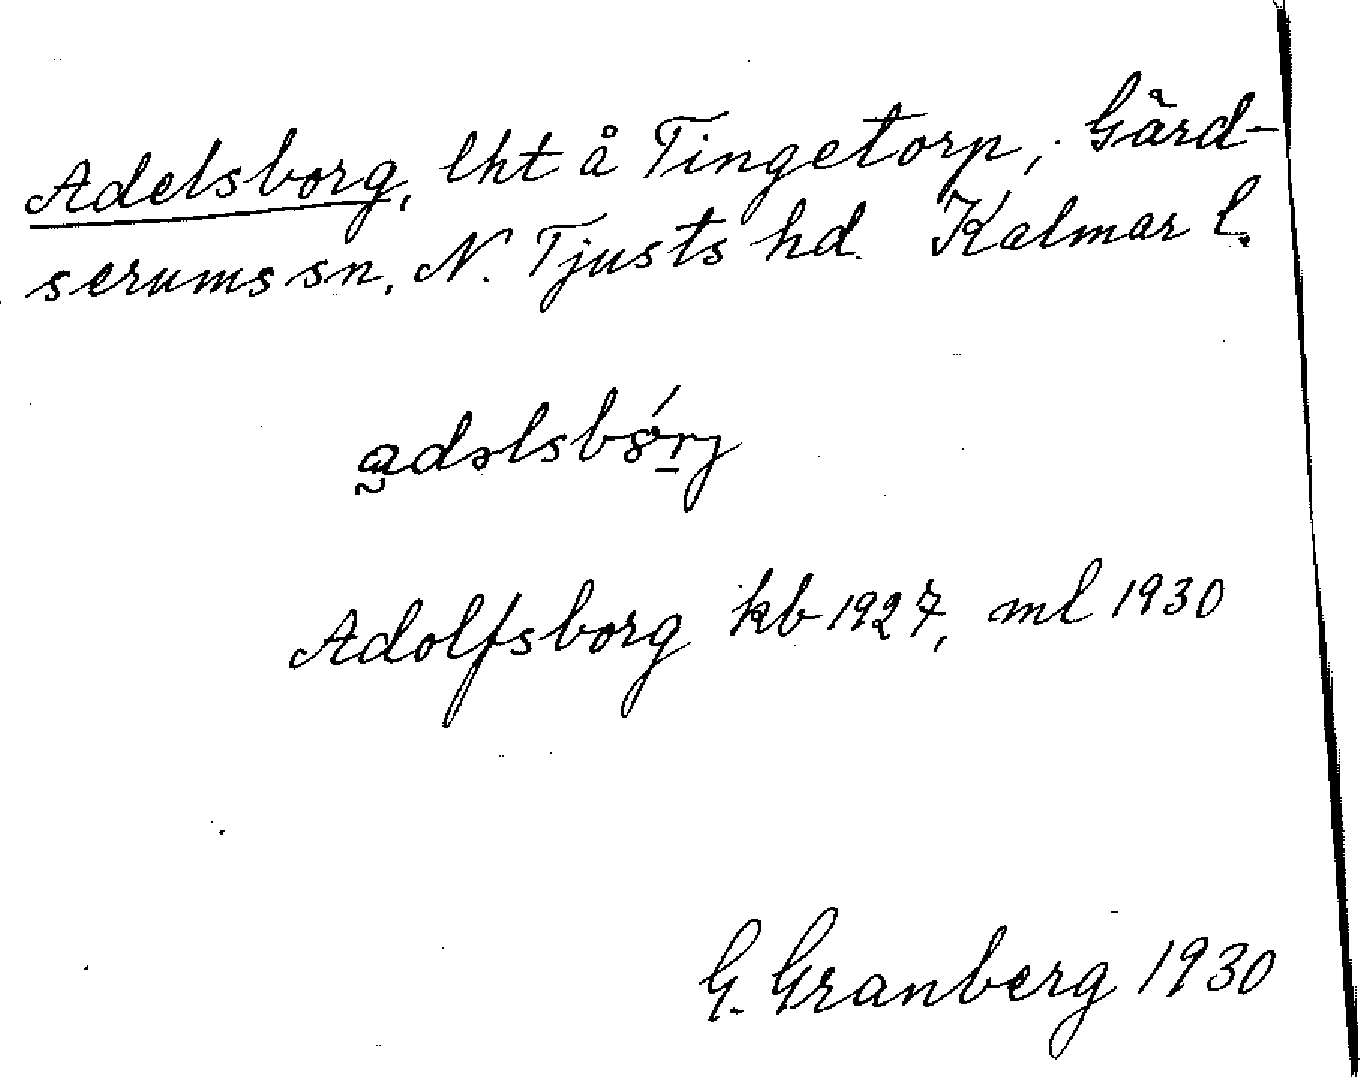 Adelsborg, lht å Tingetorp, Gärd-
serums sn, N. Tjusts hd. Kalmar l.
adəlsbórj
Adolfsborg kb 1927, ml 1930
G. Granberg 1930